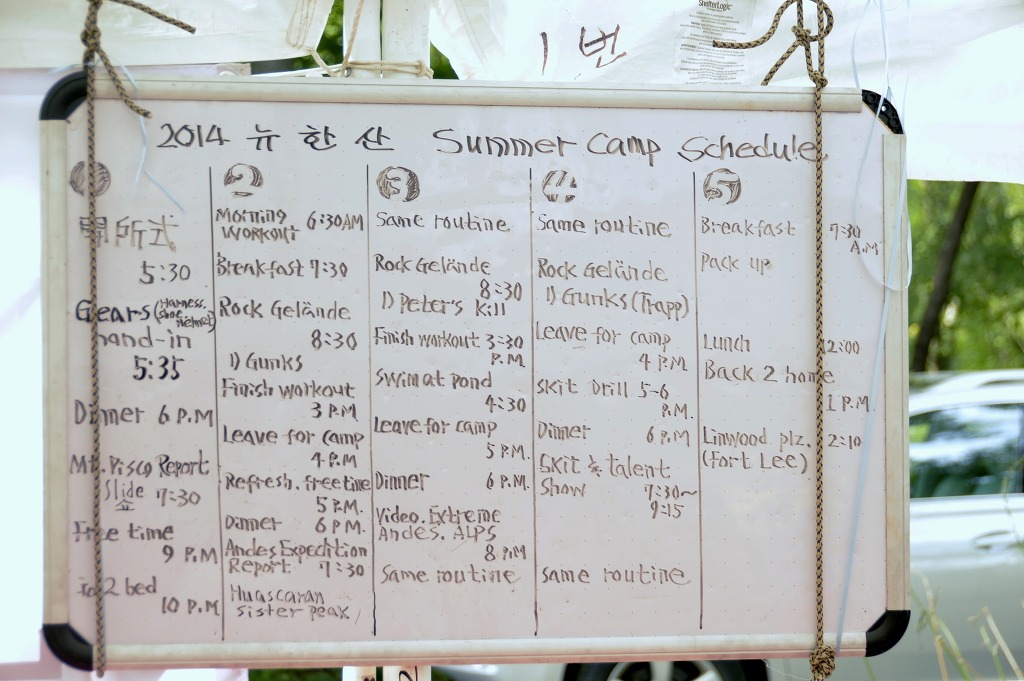 ShelterLogic
1 번
2014 뉴 한 산 Summer Camp Schedule
1
開所式
5:30
Gears (Harness. Shoe Helmet)
hand-in
5:35
Dinner 6 P.M
Mt. Pisco Report
Slide 7:30
Free time
9 P.M
Go 2 bed
10 P.M
2
Morning 6:30AM
Workout
Breakfast 7:30
Rock Gelände
8:30
1) Gunks
Finish workout
3 P.M
Leave for camp
4 P.M
Refresh. free time
5 P.M.
Dinner 6 P.M.
Andes Expedition
Report 7:30
Huascaran
sister peak,
3
Same routine
Rock Gelände
8:30
1) Peter's Kill
Finish workout 3:30
P.M.
Swim at pond
4:30
Leave for camp
5 P.M.
Dinner 6 P.M.
Video. Extreme
Andes. Alps
8 P.M
Same routine
4
Same routine
Rock Gelände
1) Gunks (Trapp)
Leave for camp
4 P.M
Skit Drill 5-6
P.M.
Dinner 6 P.M
Skit & talent
Show 7:30~
9:15
Same routine
5
Breakfast 7:30
A.M
Pack up
Lunch 12:00
Back 2 home
1 P.M.
Linwood plz. 2:10
(Fort Lee)